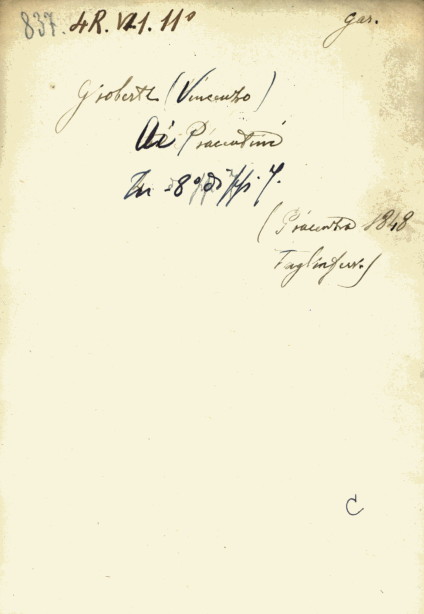 837. 4R. VII. 11° gar.
Gioberti (Vincenzo)
Ai Piacentini
In 8° di pp. 7.
(Piacenza 1848
Tagliaferr.)
C